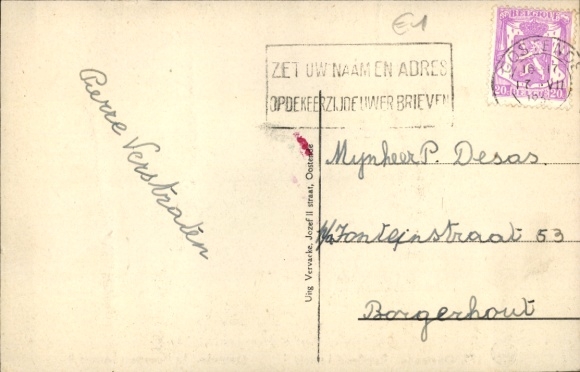 €1
BELGIQUE
20 20
OOSTENDE
ZET UW NAAM EN ADRES
OP DE KEERZIJDE UWER BRIEVEN
Pierre Verstraten
Uitg Vervacke, Jozef II straat, Oostende
Mynheer P. Desas.
Fonteinstraat 53
Borgerhout